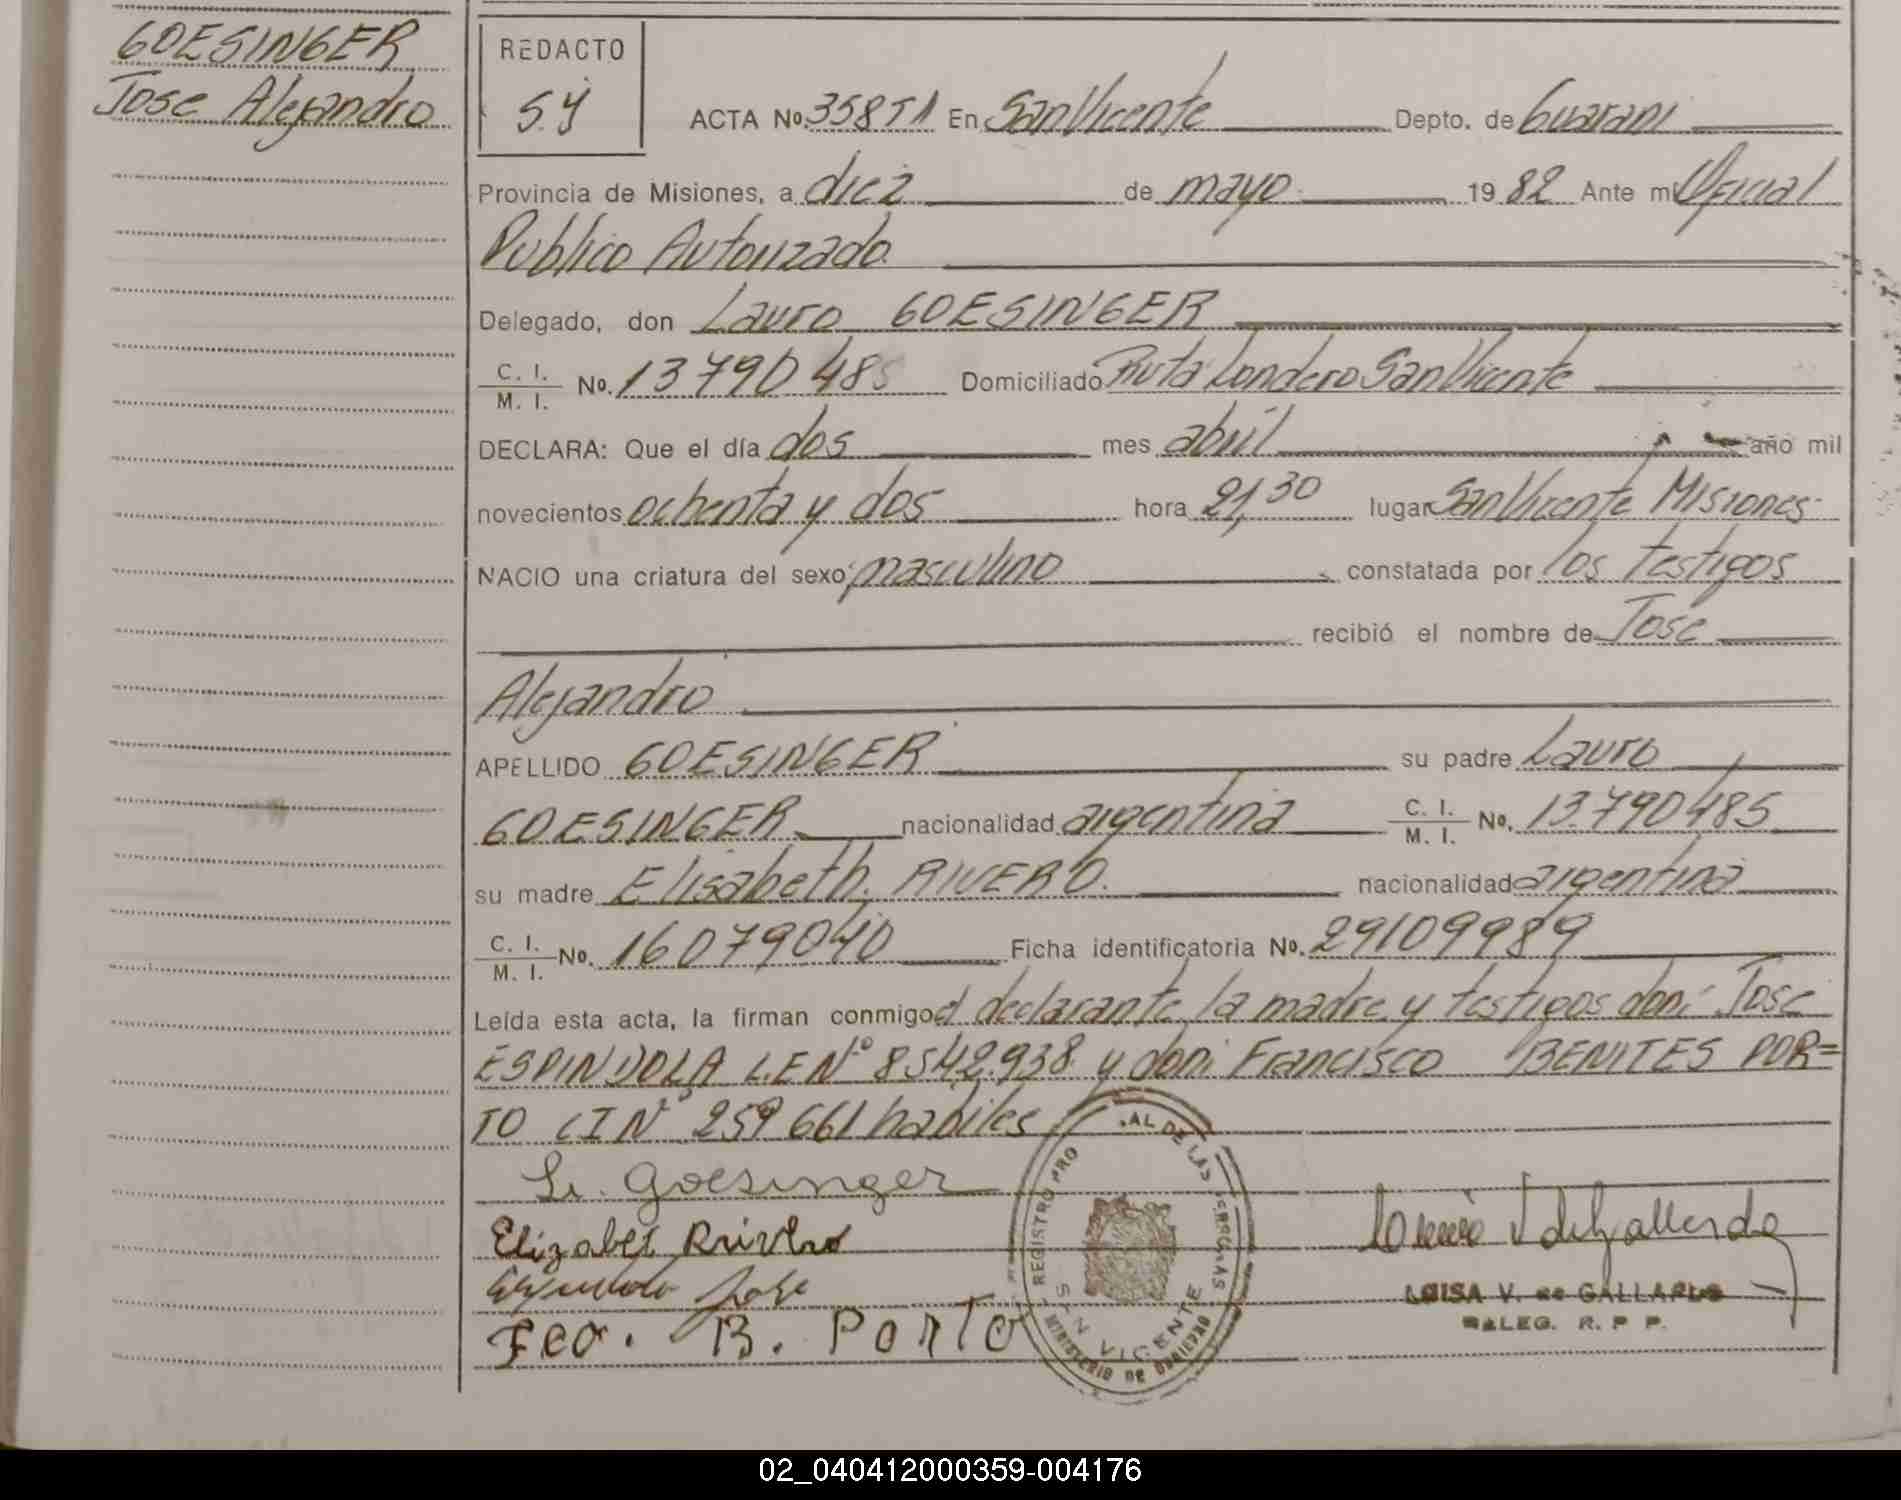 GOESINGER
Jose Alejandro
REDACTO
S.Y
ACTA No. 3585 T1 En San Vicente Depto. de Guarani
Provincia de Misiones, a diez de mayo 1982 Ante mi Oficial
Publico Autorizado
Delegado, don Lauro GOESINGER
C. I. / M. I. No. 13790485 Domiciliado Ruta Londero San Vicente
DECLARA: Que el día dos mes abril año mil
novecientos ochenta y dos hora 21,30 lugar San Vicente Misiones
NACIO una criatura del sexo masculino constatada por los testigos
recibió el nombre de Jose
Alejandro
APELLIDO GOESINGER su padre Lauro
GOESINGER nacionalidad argentina C. I. / M. I. No. 13.790.485
su madre Elisabeth RIVERO. nacionalidad argentina
C. I. / M. I. No. 16079040 Ficha identificatoria No. 29109989
Leída esta acta, la firman conmigo el declarante, la madre y testigos don: Jose
ESPINDOLA L.E Nº 8542.938 y don: Francisco BENITES POR=
TO C I Nº 259661 habiles
L. Goesinger
Elizabet Rivero
Espindola Jose
Fco. B. Porto
REGISTRO PRO AL DE LAS PERSONAS
SAN VICENTE
MINISTERIO DE GOBIERNO
LUISA V. de GALLARDO
DELEG. R. P. P.
02_040412000359-004176